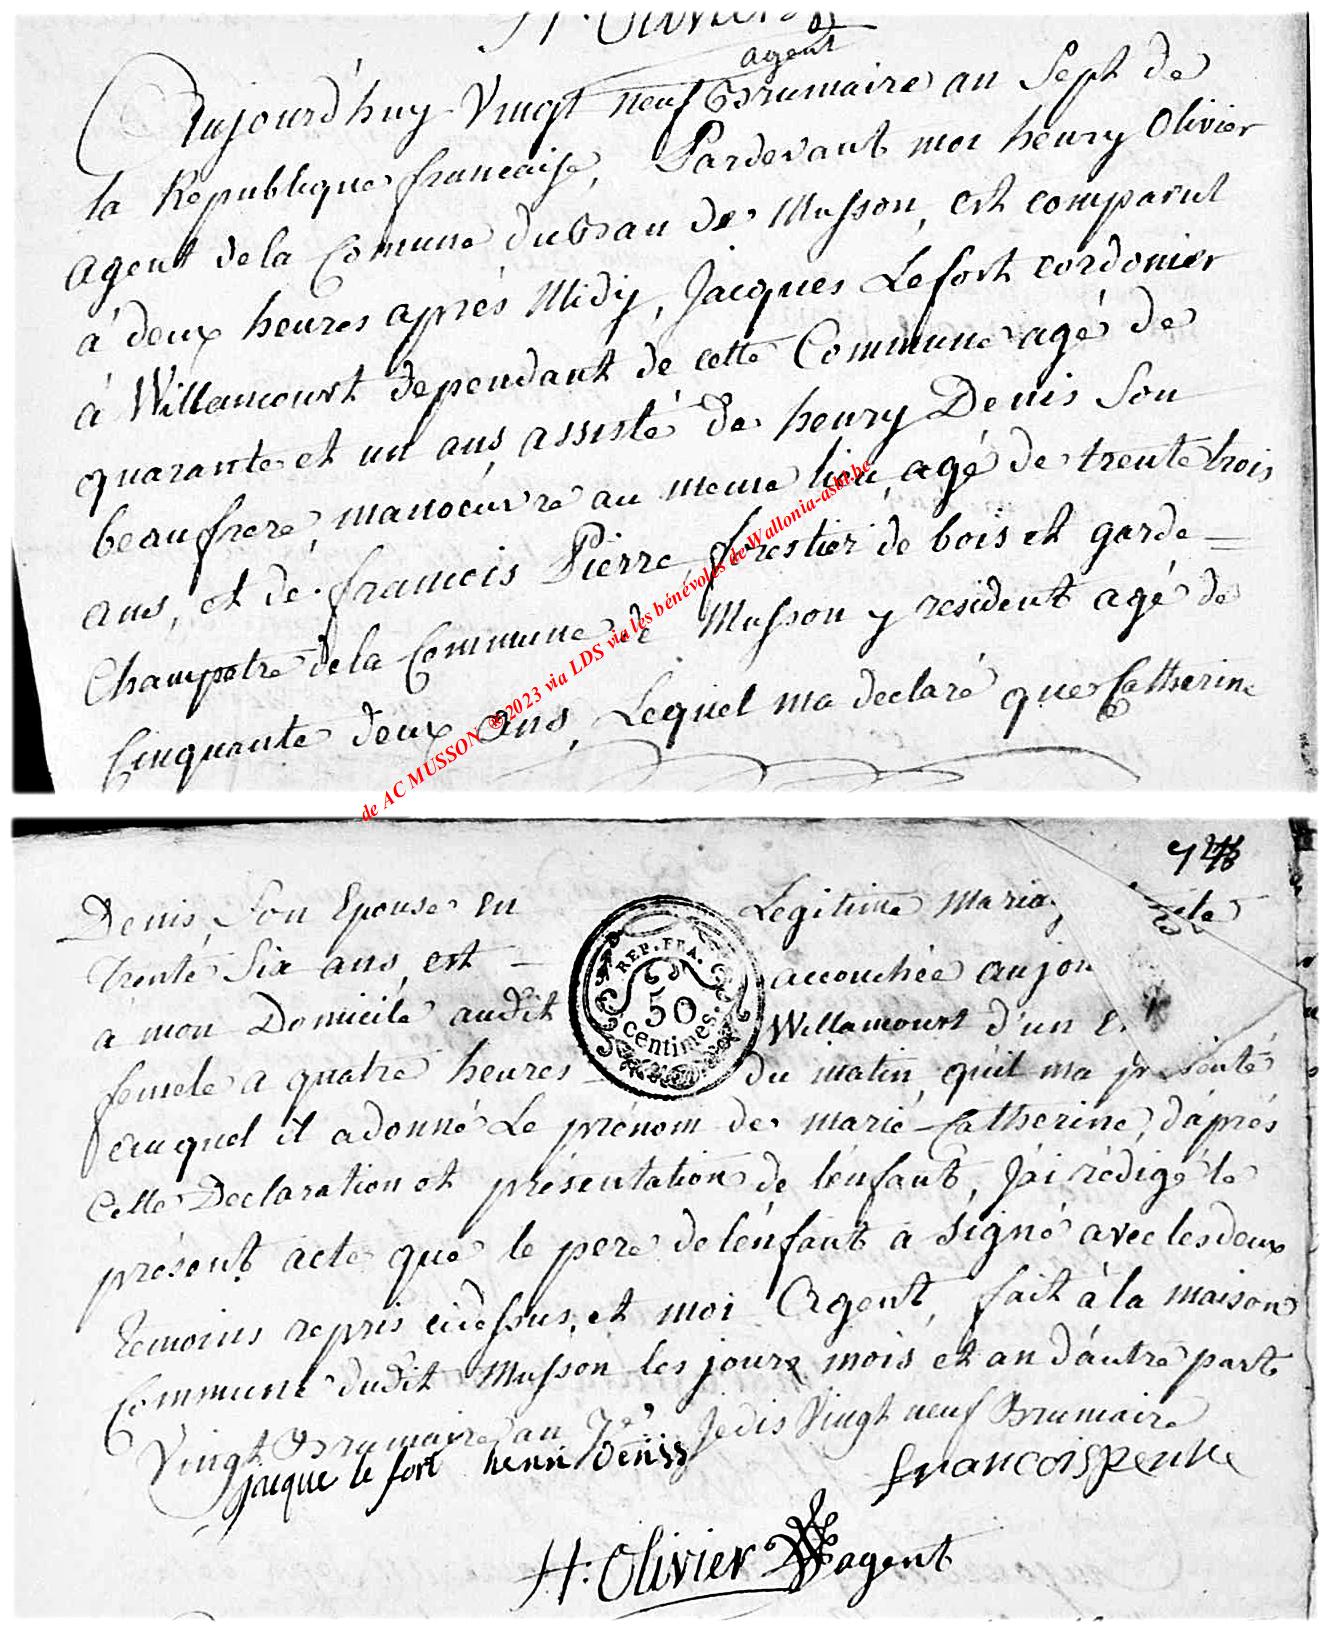 H. Olivier
agent
Aujourd'huy Vingt neuf Brumaire an Sept de
la Republique francaise, Pardevant moi henry Olivier
agent de la Comune du Ban de Musson, est comparut
à deux heures aprés Midy, Jacques Lefort cordonier
à Willamcourt dependant de cette Commune agé de
quarante et un ans, assisté de henry Denis Son
beaufrere, manoeuvre au meme lieu, agé de trente trois
ans, et de francois Pierre, forestier de bois et garde =
Champetre de la Commune de Musson y resident agé de
Cinquante deux ans, Lequel ma declaré que Catherine
de AC MUSSON ® 2023 via LDS via les bénévoles de Wallonia-asbl.be
Denis, Son Epouse en Legitime Maria
trente Six ans, est - accouchée aujou
à mon Domicile audit Willamcourt d'un
femele a quatre heures du matin, qu'il ma presenté
auquel il adonné Le prénom de marie Catherine, d'aprés
Cette Declaration et présentation de l'énfant, J'ai rédigé le
présent acte que le pere de l'énfant a Signé avec les deux
temoins repris cidessus, et moi Agent, fait à la maison
Commune dudit Musson les jours mois et an d'autre part
Vingt Brumaire an 7e Jedis Vingt neuf Brumaire
REP. FRA.
50
centimes.
jacque le fort henri Deniss francois pierre
H. Olivier agent